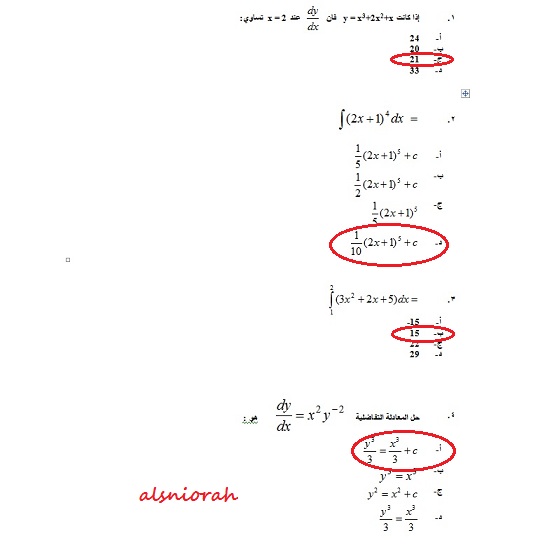 ١. إذا كانت y = x³+2x²+x فان dy/dx عند x = 2 تساوي:
أ- 24
ب- 20
ج- 21
د- 33
٢. ∫(2x+1)⁴dx =
أ- 1/5(2x+1)⁵+c
ب- 1/2(2x+1)⁵+c
ج- 1/5(2x+1)⁵
د- 1/10(2x+1)⁵+c
٣. ∫₁²(3x²+2x+5)dx=
أ- -15
ب- 15
ج- 22
د- 29
٤. حل المعادلة التفاضلية dy/dx = x²y⁻² هو:
أ- y³/3 = x³/3 + c
ب- y³ = x³
ج- y² = x² + c
د- y³/3 = x³/3
alsniorah